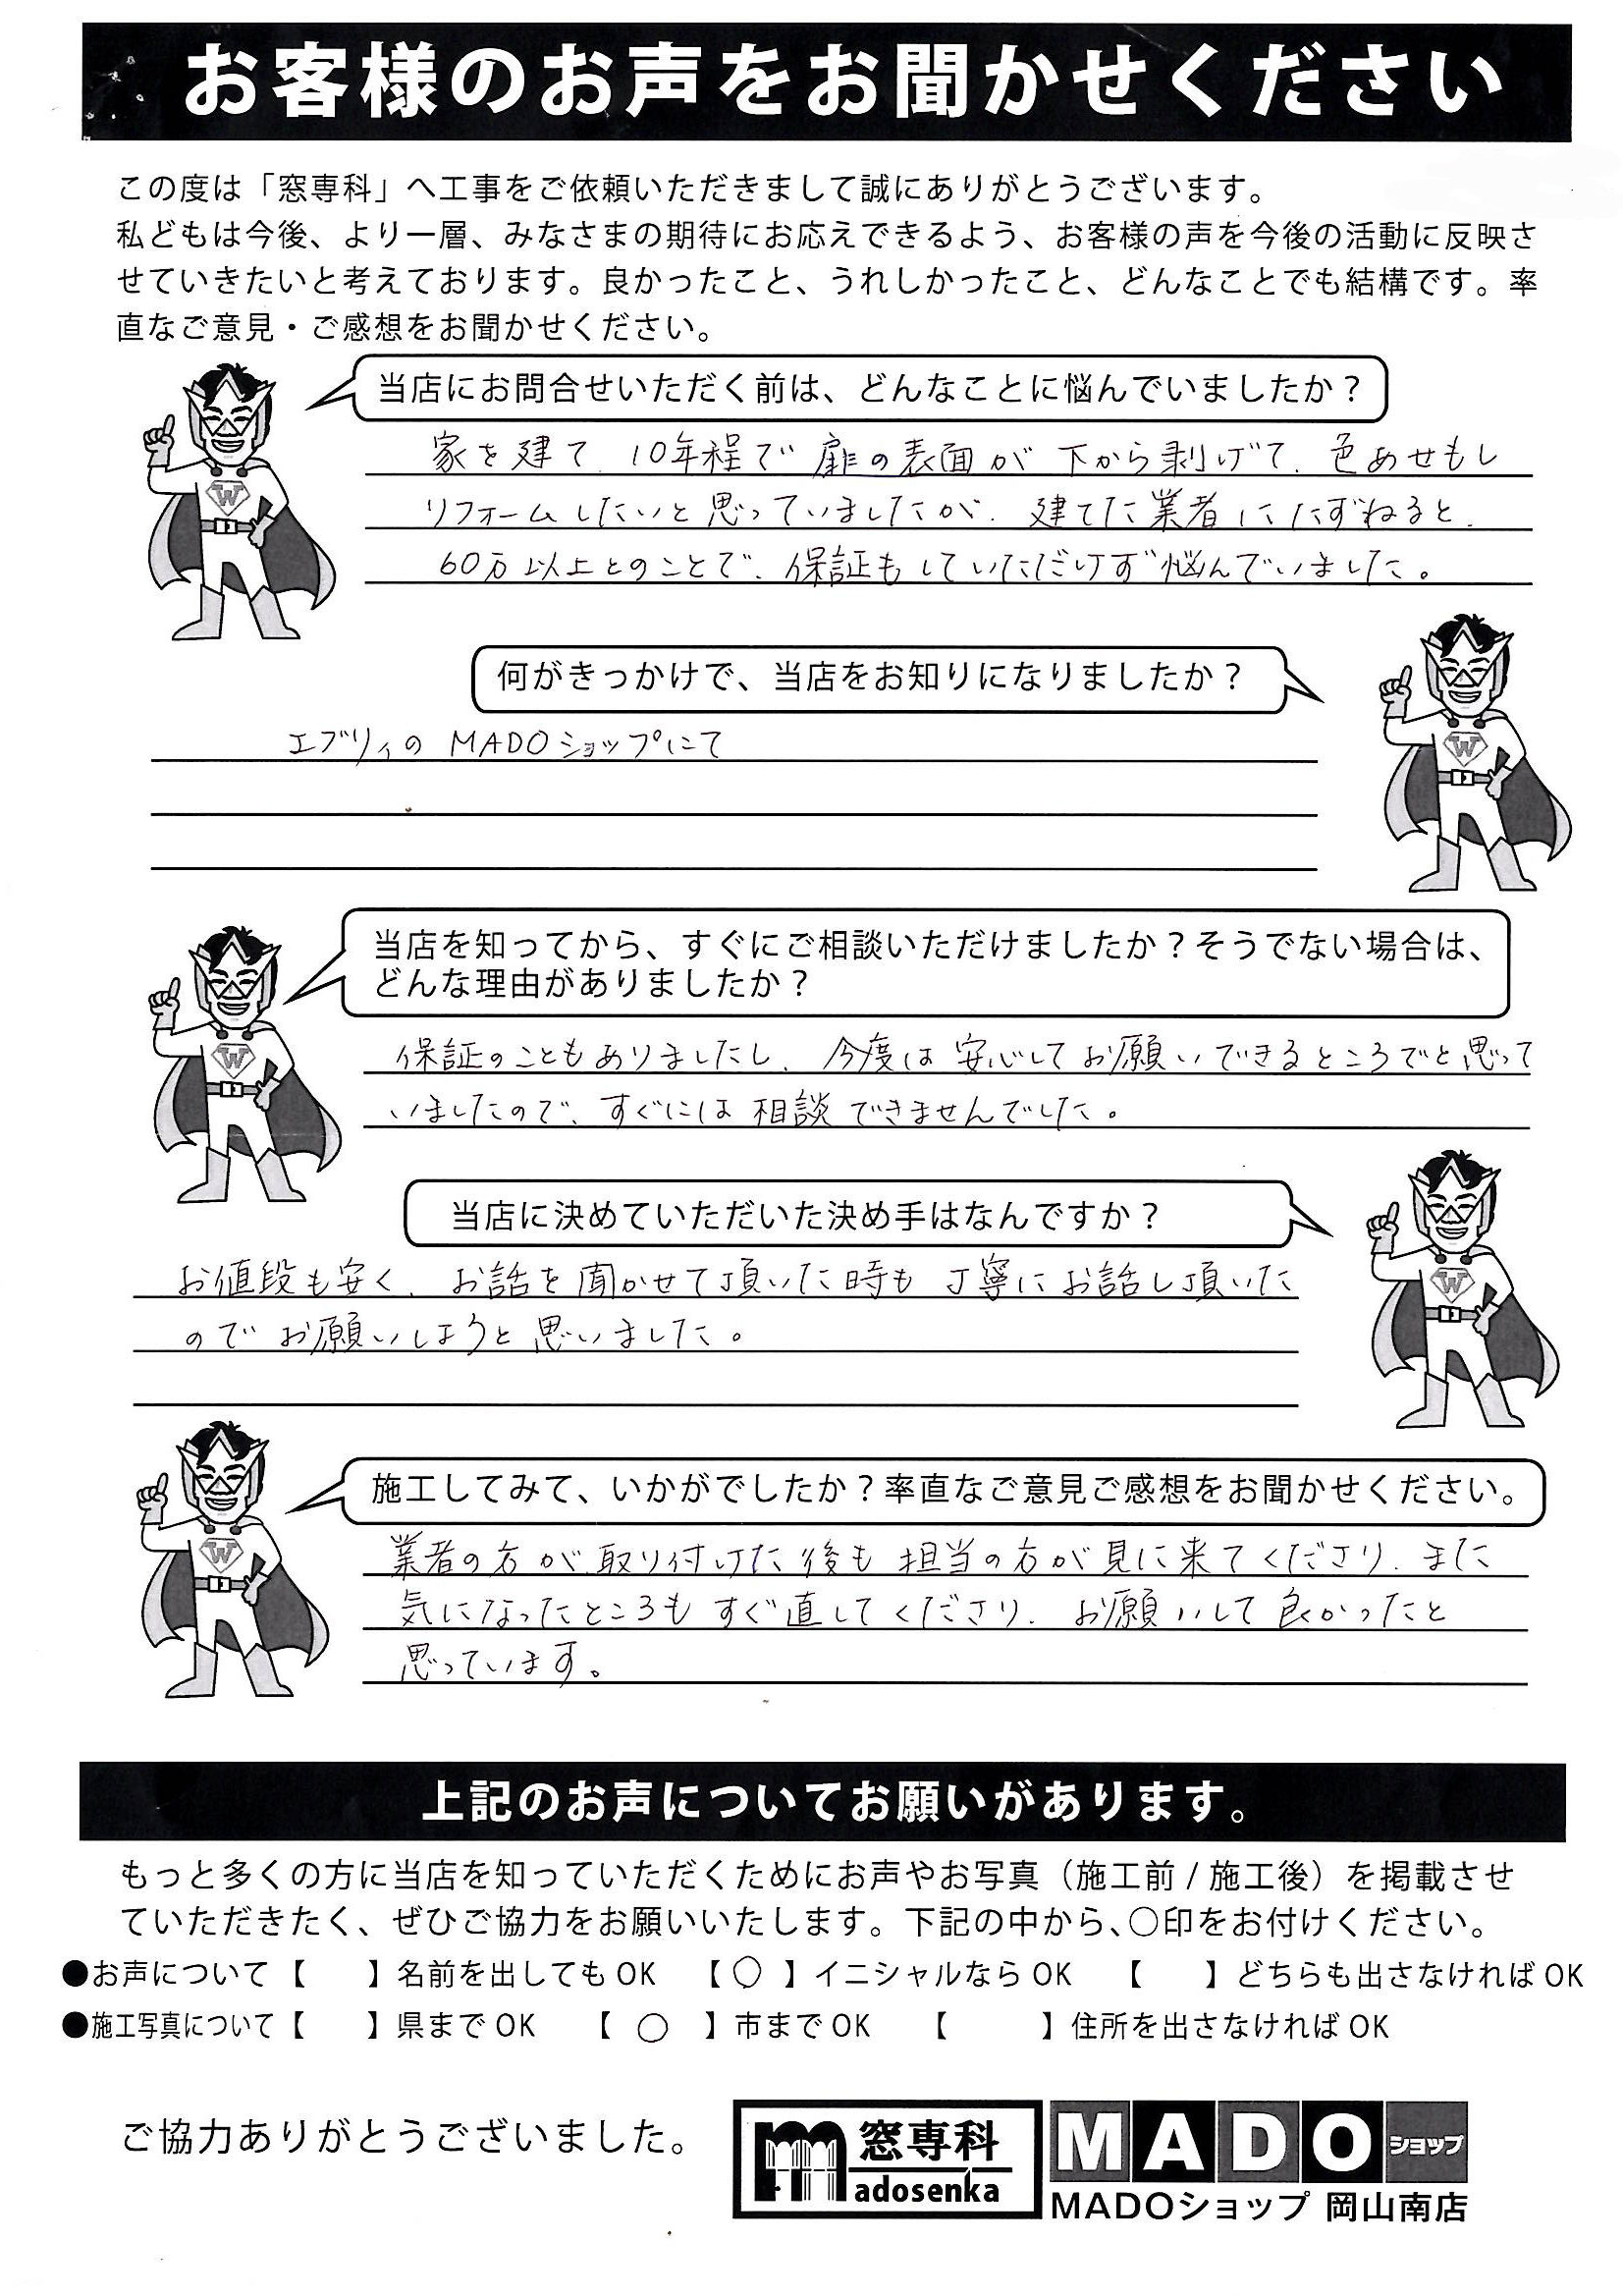 お客様のお声をお聞かせください
この度は「窓専科」へ工事をご依頼いただきまして誠にありがとうございます。
私どもは今後、より一層、みなさまの期待にお応えできるよう、お客様の声を今後の活動に反映さ
せていきたいと考えております。良かったこと、うれしかったこと、どんなことでも結構です。率
直なご意見・ご感想をお聞かせください。
当店にお問合せいただく前は、どんなことに悩んでいましたか？
家を建て、10年程で扉の表面が下から剥げて、色あせもし
リフォームしたいと思っていましたが、建てた業者にたずねると、
60万以上とのことで、保証もしていただけず悩んでいました。
何がきっかけで、当店をお知りになりましたか？
エブリィの MADOショップにて
当店を知ってから、すぐにご相談いただけましたか？そうでない場合は、
どんな理由がありましたか？
保証のこともありましたし、今度は安心してお願いできるところでと思って
いましたので、すぐには相談できませんでした。
当店に決めていただいた決め手はなんですか？
お値段も安く、お話を聞かせて頂いた時も丁寧にお話し頂いた
のでお願いしようと思いました。
施工してみて、いかがでしたか？率直なご意見ご感想をお聞かせください。
業者の方が取り付けた後も担当の方が見に来てくださり、また
気になったところもすぐ直してくださり、お願いして良かったと
思っています。
上記のお声についてお願いがあります。
もっと多くの方に当店を知っていただくためにお声やお写真（施工前 / 施工後）を掲載させ
ていただきたく、ぜひご協力をお願いいたします。下記の中から、○印をお付けください。
●お声について【　　】名前を出しても OK 【 ○ 】イニシャルなら OK 【　　】どちらも出さなければ OK
●施工写真について【　　】県まで OK 【 ○ 】市まで OK 【　　】住所を出さなければ OK
ご協力ありがとうございました。
窓専科
madosenka
MADO ショップ
MADOショップ 岡山南店